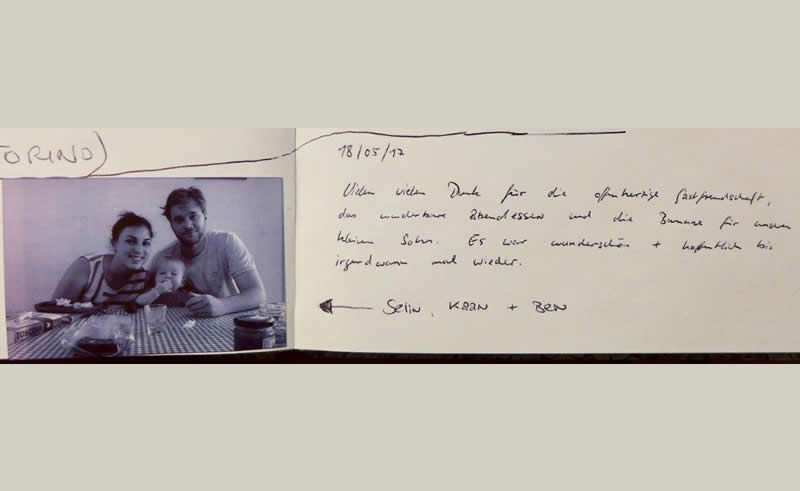 TORINO)
18/05/17
Vielen vielen Dank für die offenherzige Gastfreundschaft,
das wunderbare Abendessen und die Banane für unseren
kleinen Sohn. Es war wunderschön + hoffentlich bis
irgendwann mal wieder.
Selin, Kaan + Ben